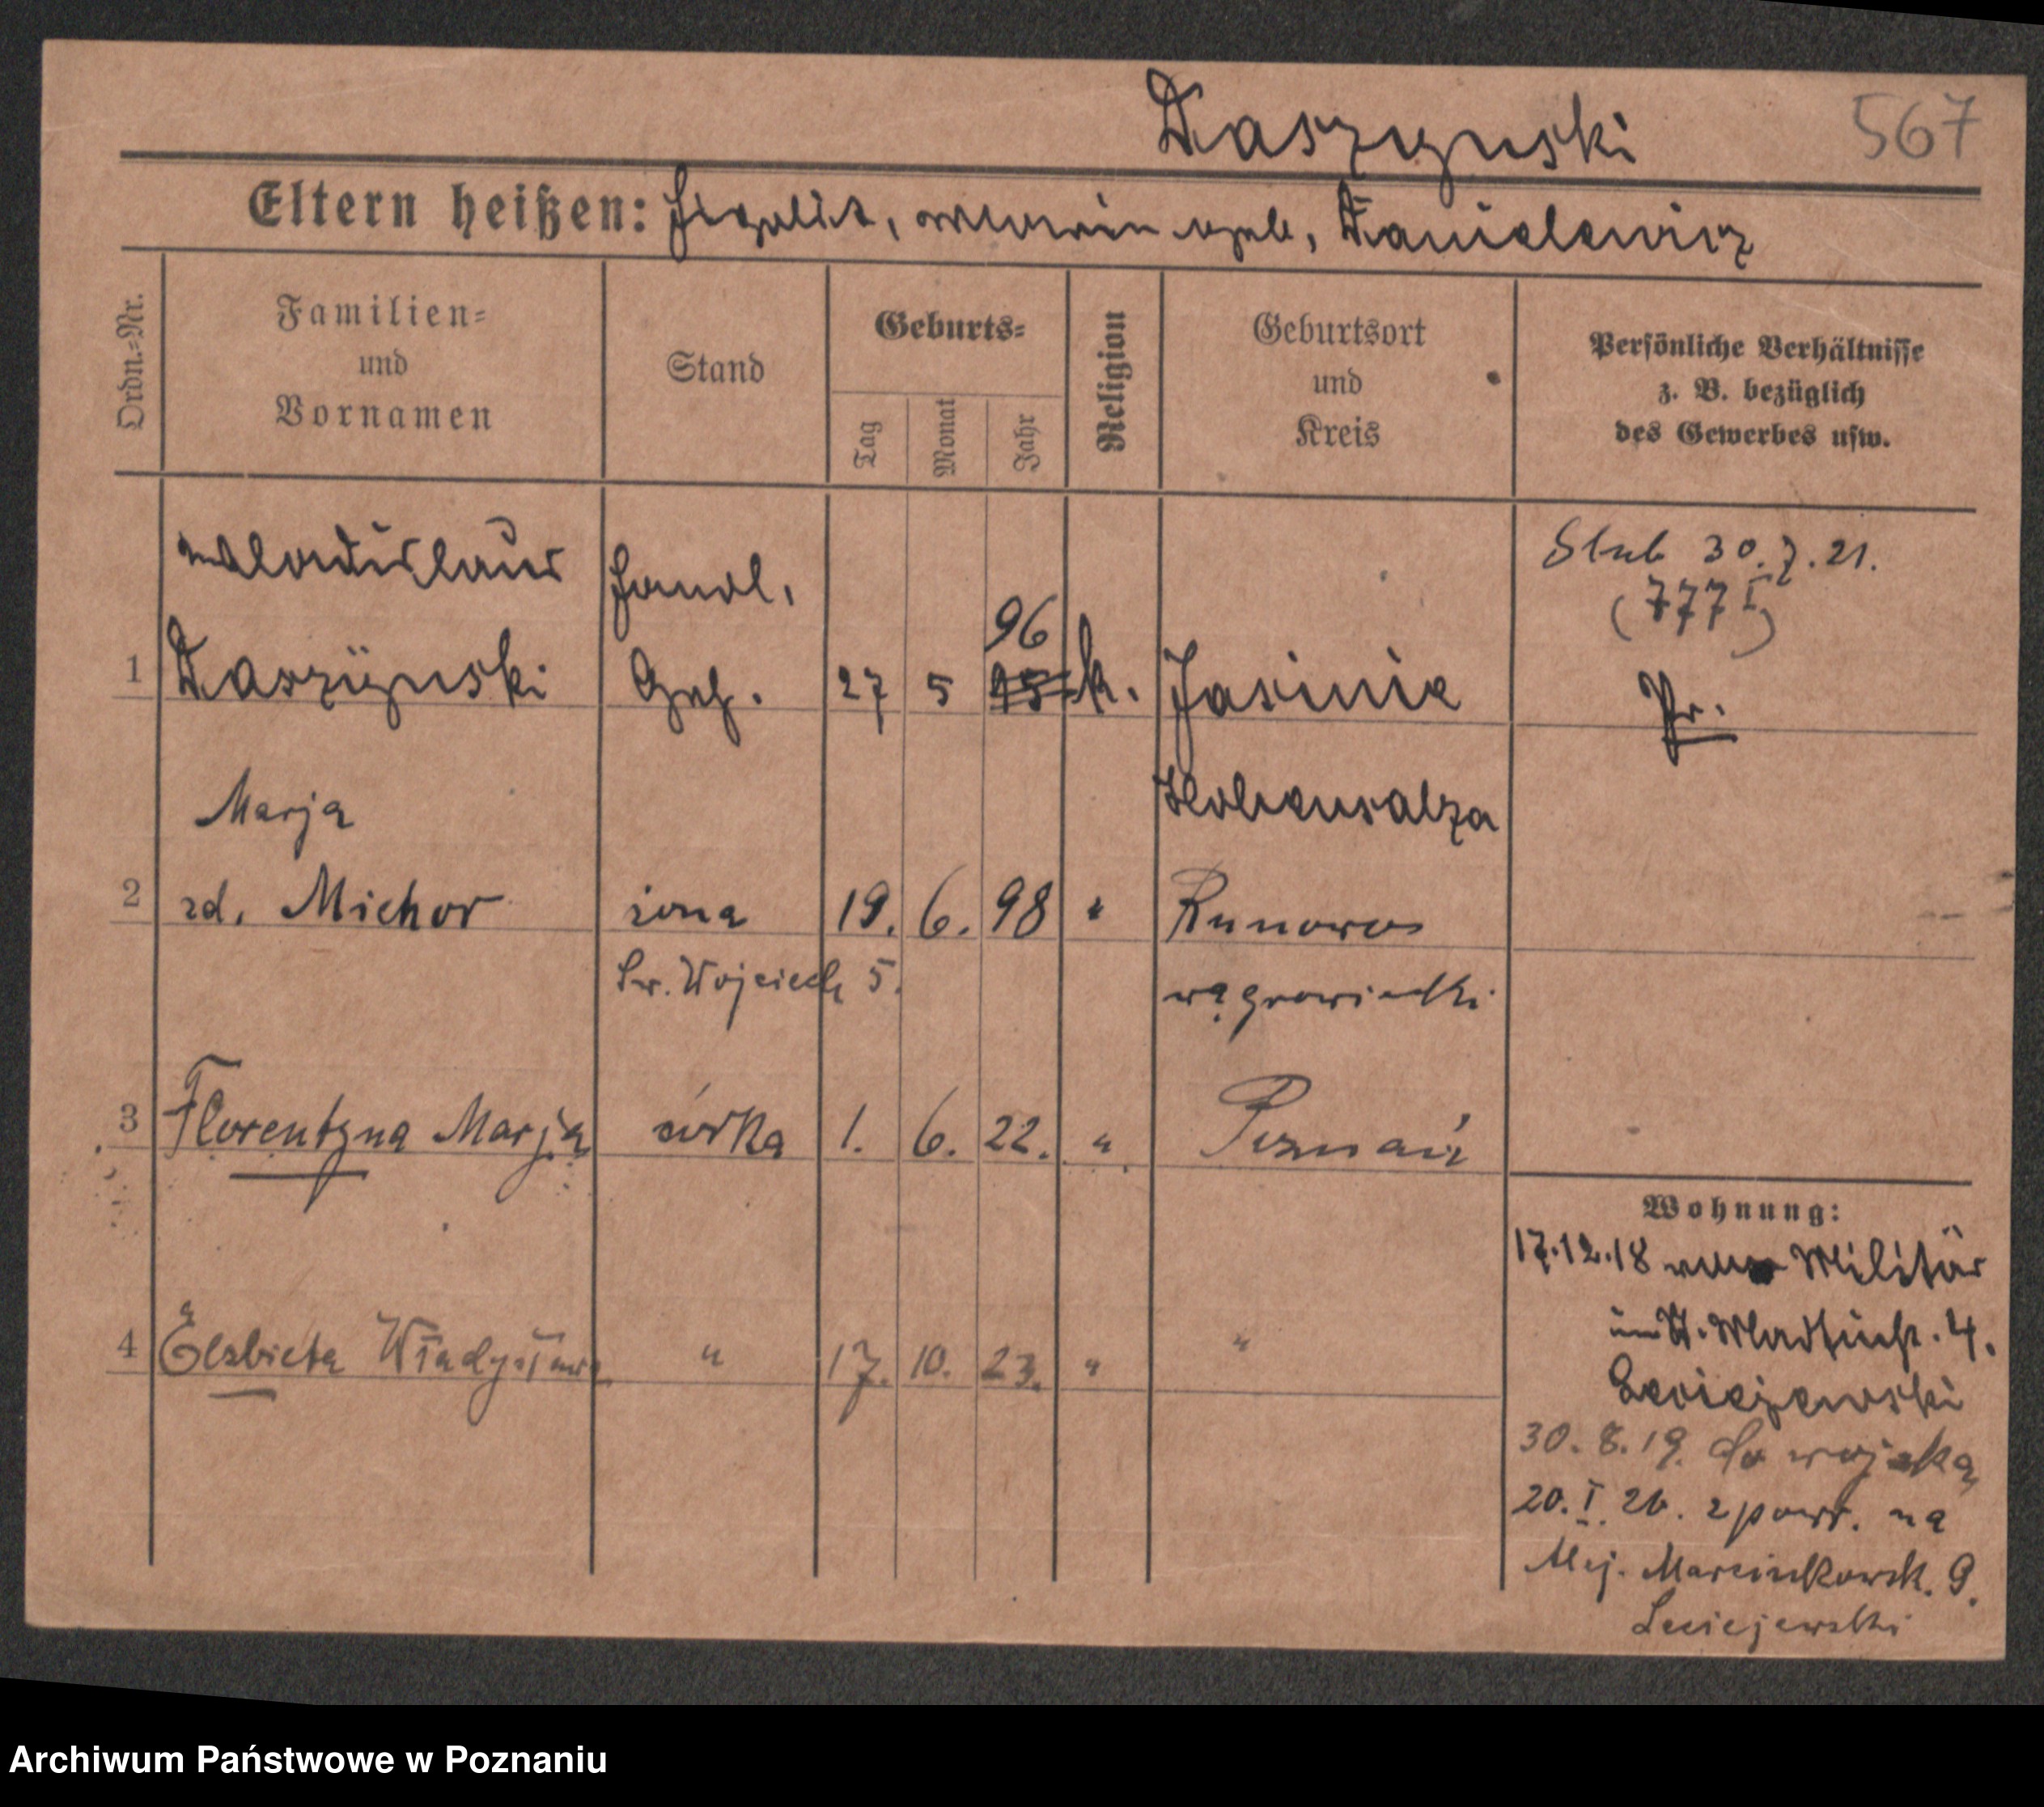 Daszynski 567
Eltern heißen: Hypolit, geb. Danielewicz
Ordn.=Nr.
Familien=
und
Vornamen
Stand
Geburts=
Tag
Monat
Jahr
Religion
Geburtsort
und
Kreis
Persönliche Verhältnisse
z. B. bezüglich
des Gewerbes usw.
Wladislaus Handl.
1 Daszÿnski Geh. 27 5 96 k. Jasinie
Slub 30.7.21.
(777 I)
Pr.
Marja Hohensalza
2 zd. Michor żona 19. 6. 98 " Runowo
Św. Wojciech 5. wągrowiecki
3 Florentyna Marja córka 1. 6. 22. " Poznań
4 Elżbieta Władysława " 17. 10. 23. " "
Wohnung:
17.12.18 vom Militär
4.
Leciejewski
30.8.19. do wojska
20.I.20. z powr. na
Alej. Marcinkowsk. 9.
Leciejewski
Archiwum Państwowe w Poznaniu